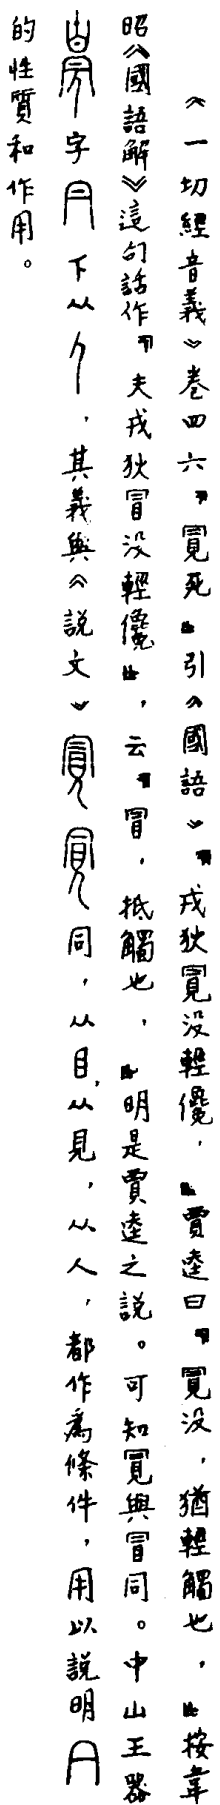 《一切經音義》卷四六"冝死"引《國語》"戎狄冝没輕儳，"賈逵曰"冝没，猶輕觸也，"按韋
昭《國語解》這句話作"夫戎狄冒没輕儳"，云"冒，抵觸也，"明是賈逵之說。可知冝與冒同。中山王器
字下从人，其義與《說文》同，从目从見，从人，都作爲條件，用以說明
的性質和作用。